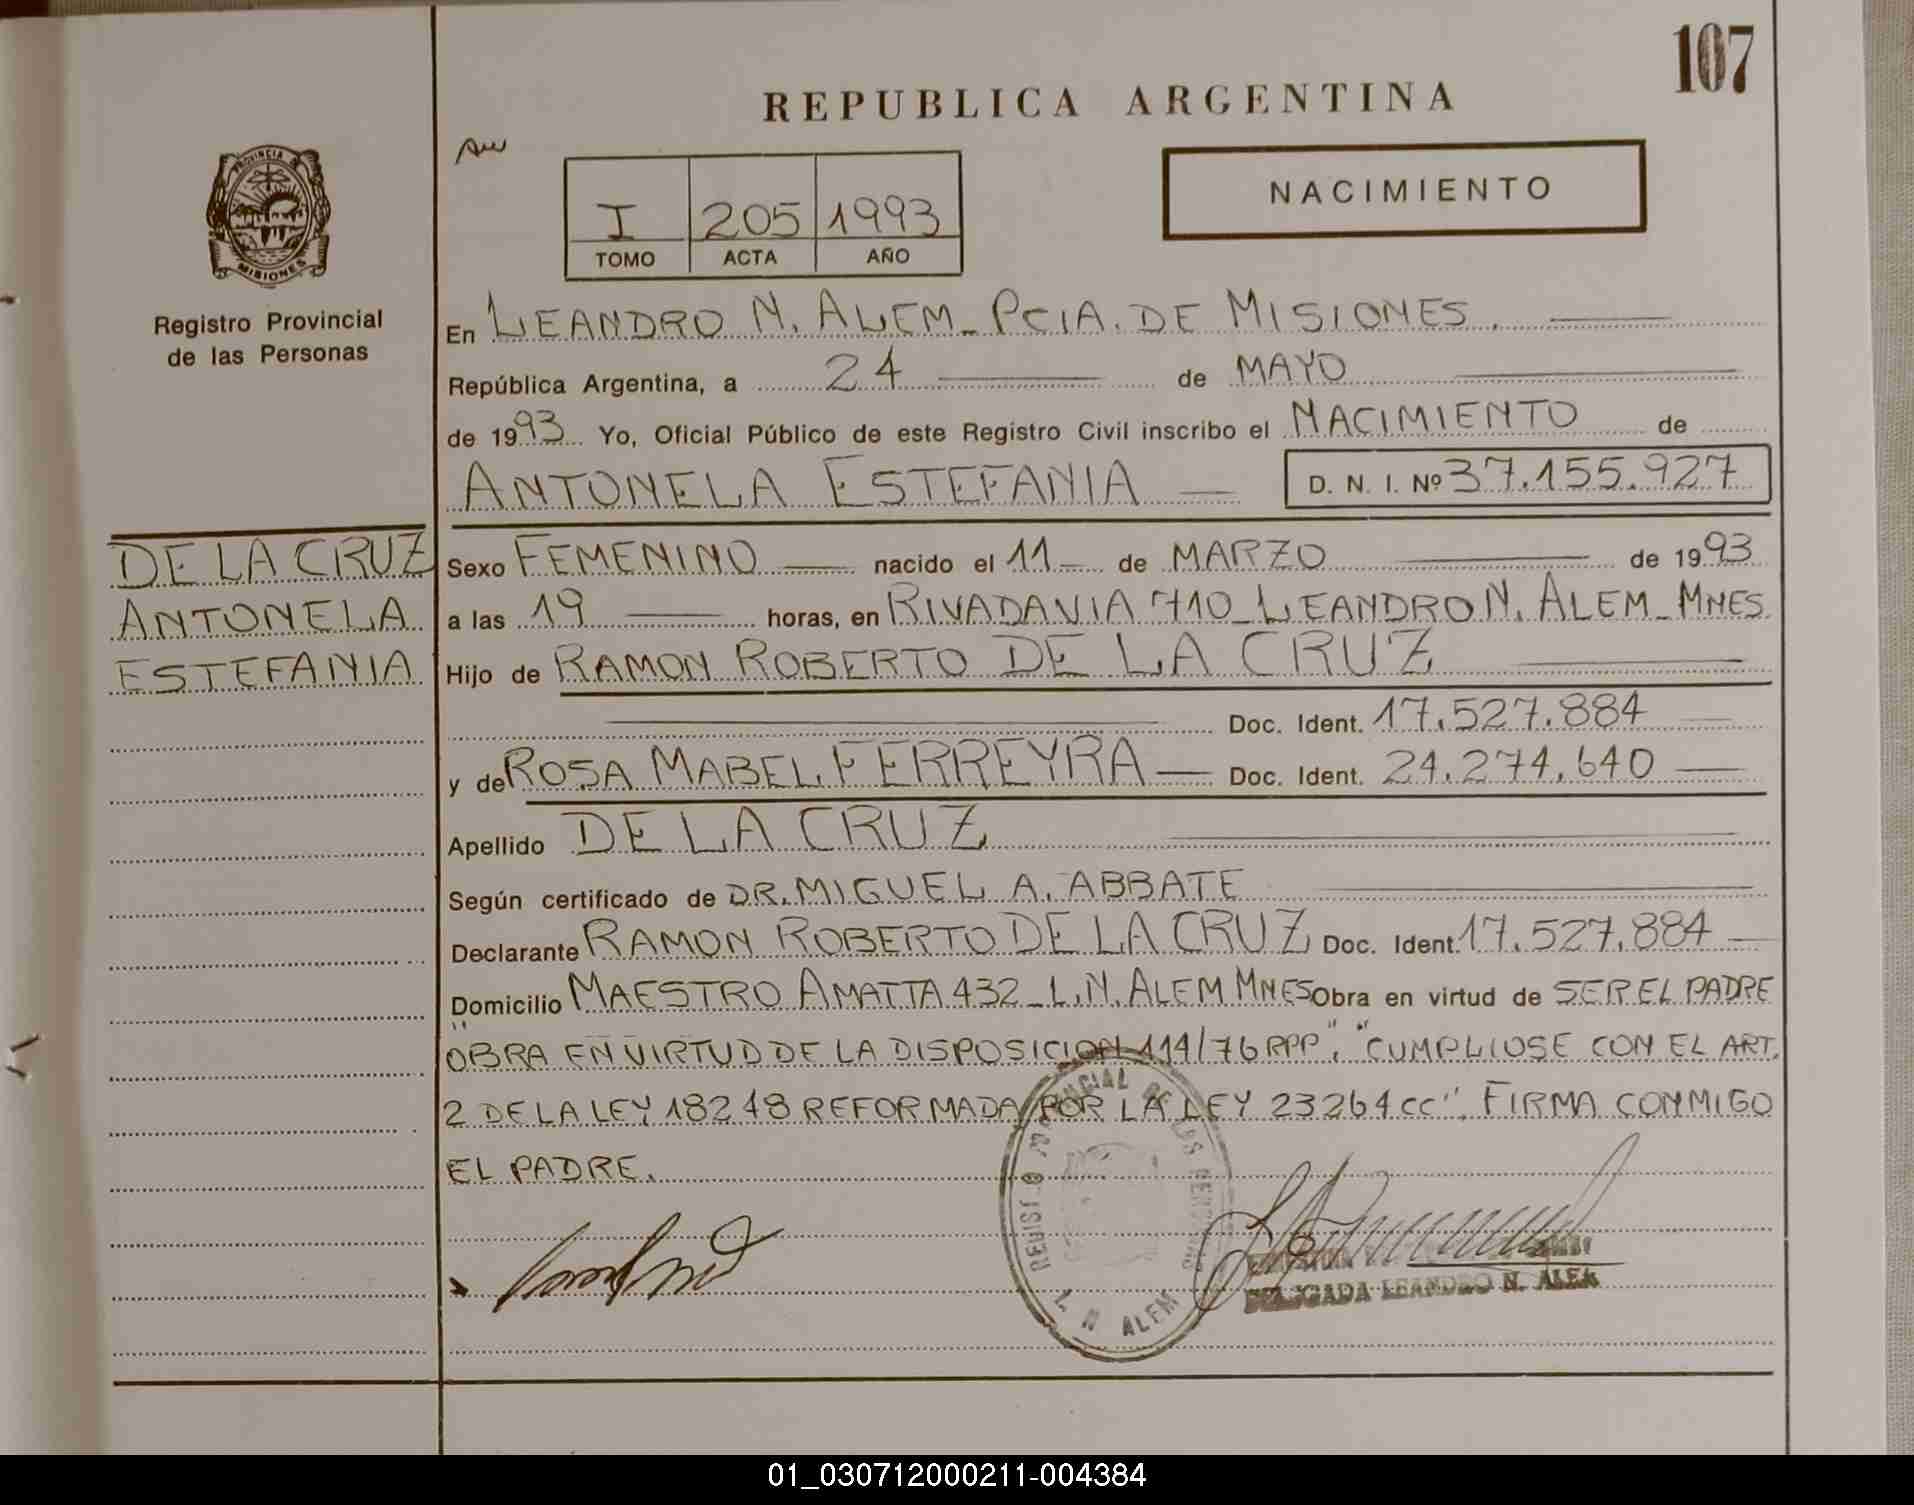 107
REPUBLICA ARGENTINA
PROVINCIA DE
MISIONES
NACIMIENTO
I 205 1993
TOMO ACTA AÑO
Registro Provincial
de las Personas
En LEANDRO N. ALEM - PCIA. DE MISIONES.
República Argentina, a 24 de MAYO
de 1993 Yo, Oficial Público de este Registro Civil inscribo el NACIMIENTO de
ANTONELA ESTEFANIA D. N. I. Nº 37.155.927
DE LA CRUZ
ANTONELA
ESTEFANIA
Sexo FEMENINO nacido el 11 de MARZO de 1993
a las 19 horas, en RIVADAVIA 710 - LEANDRO N. ALEM - MNES.
Hijo de RAMON ROBERTO DE LA CRUZ
Doc. Ident. 17.527.884
y de ROSA MABEL FERREYRA Doc. Ident. 24.274.640
Apellido DE LA CRUZ
Según certificado de DR. MIGUEL A. ABBATE
Declarante RAMON ROBERTO DE LA CRUZ Doc. Ident. 17.527.884
Domicilio MAESTRO AMATTA 432 - L.N. ALEM MNES Obra en virtud de SER EL PADRE
"OBRA EN VIRTUD DE LA DISPOSICION 114/76 RPP". "CUMPLIOSE CON EL ART.
2 DE LA LEY 18248 REFORMADA POR LA LEY 23264 CC". FIRMA CONMIGO
EL PADRE.
REGISTRO PROVINCIAL DE LAS PERSONAS
L. N. ALEM
DELEGADA LEANDRO N. ALEM
01_030712000211-004384